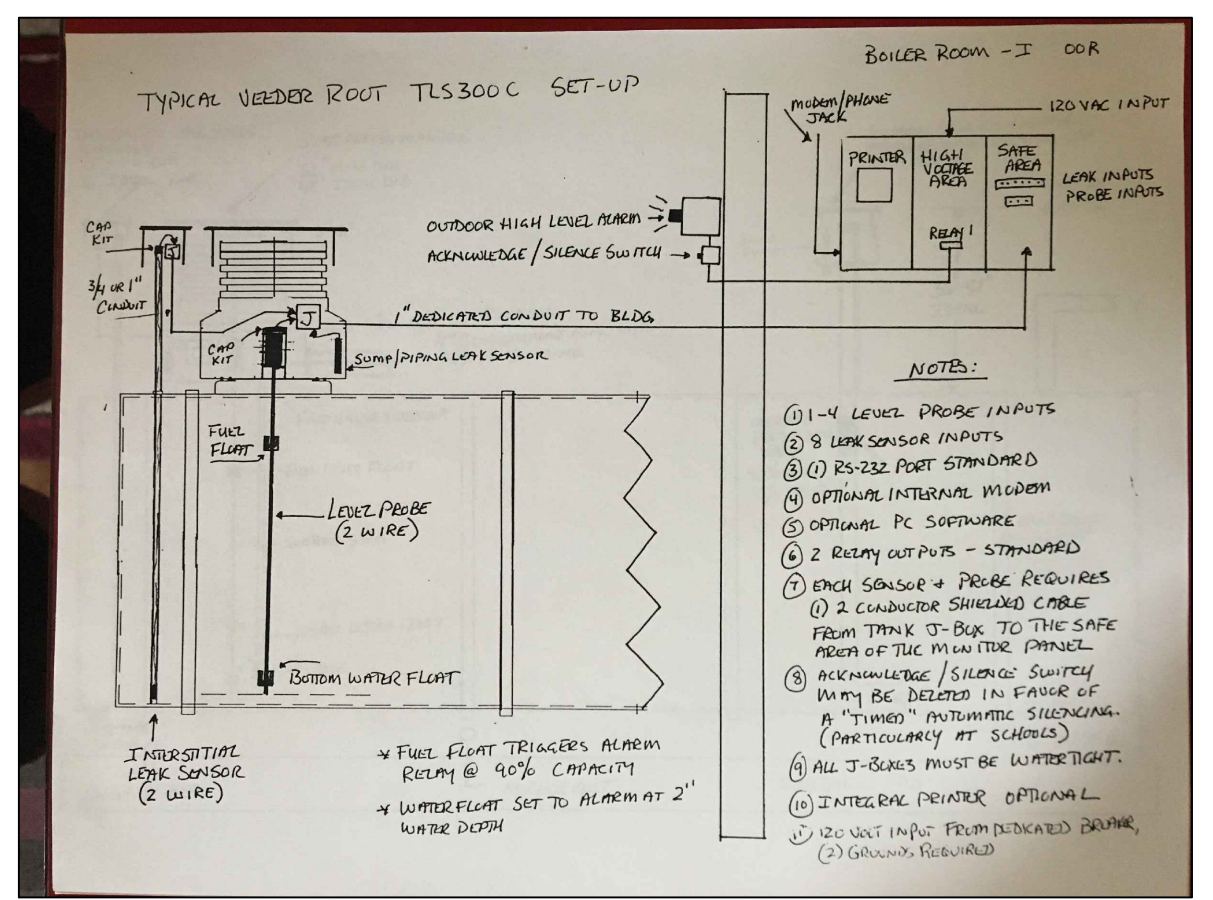 BOILER ROOM - I OOR
TYPICAL VEEDER ROOT TLS300C SET-UP
MODEM/PHONE
JACK
120 VAC INPUT
PRINTER
HIGH
VOLTAGE
AREA
SAFE
AREA
LEAK INPUTS
PROBE INPUTS
RELAY 1
OUTDOOR HIGH LEVEL ALARM
ACKNOWLEDGE / SILENCE SWITCH
CAP
KIT
J
3/4 OR 1"
CONDUIT
J
1" DEDICATED CONDUIT TO BLDG
CAP
KIT
SUMP/PIPING LEAK SENSOR
FUEL
FLOAT
LEVEL PROBE
(2 WIRE)
BOTTOM WATER FLOAT
INTERSTITIAL
LEAK SENSOR
(2 WIRE)
* FUEL FLOAT TRIGGERS ALARM
RELAY @ 90% CAPACITY
* WATER FLOAT SET TO ALARM AT 2"
WATER DEPTH
NOTES:
① 1-4 LEVEL PROBE INPUTS
② 8 LEAK SENSOR INPUTS
③ (1) RS-232 PORT STANDARD
④ OPTIONAL INTERNAL MODEM
⑤ OPTIONAL PC SOFTWARE
⑥ 2 RELAY OUTPUTS - STANDARD
⑦ EACH SENSOR + PROBE REQUIRES
(1) 2 CONDUCTOR SHIELDED CABLE
FROM TANK J-BOX TO THE SAFE
AREA OF THE MONITOR PANEL
⑧ ACKNOWLEDGE / SILENCE SWITCH
MAY BE DELETED IN FAVOR OF
A "TIMED" AUTOMATIC SILENCING.
(PARTICULARLY AT SCHOOLS)
⑨ ALL J-BOXES MUST BE WATERTIGHT.
⑩ INTEGRAL PRINTER OPTIONAL
⑪ 120 VOLT INPUT FROM DEDICATED BREAKER,
(2) GROUNDS REQUIRED